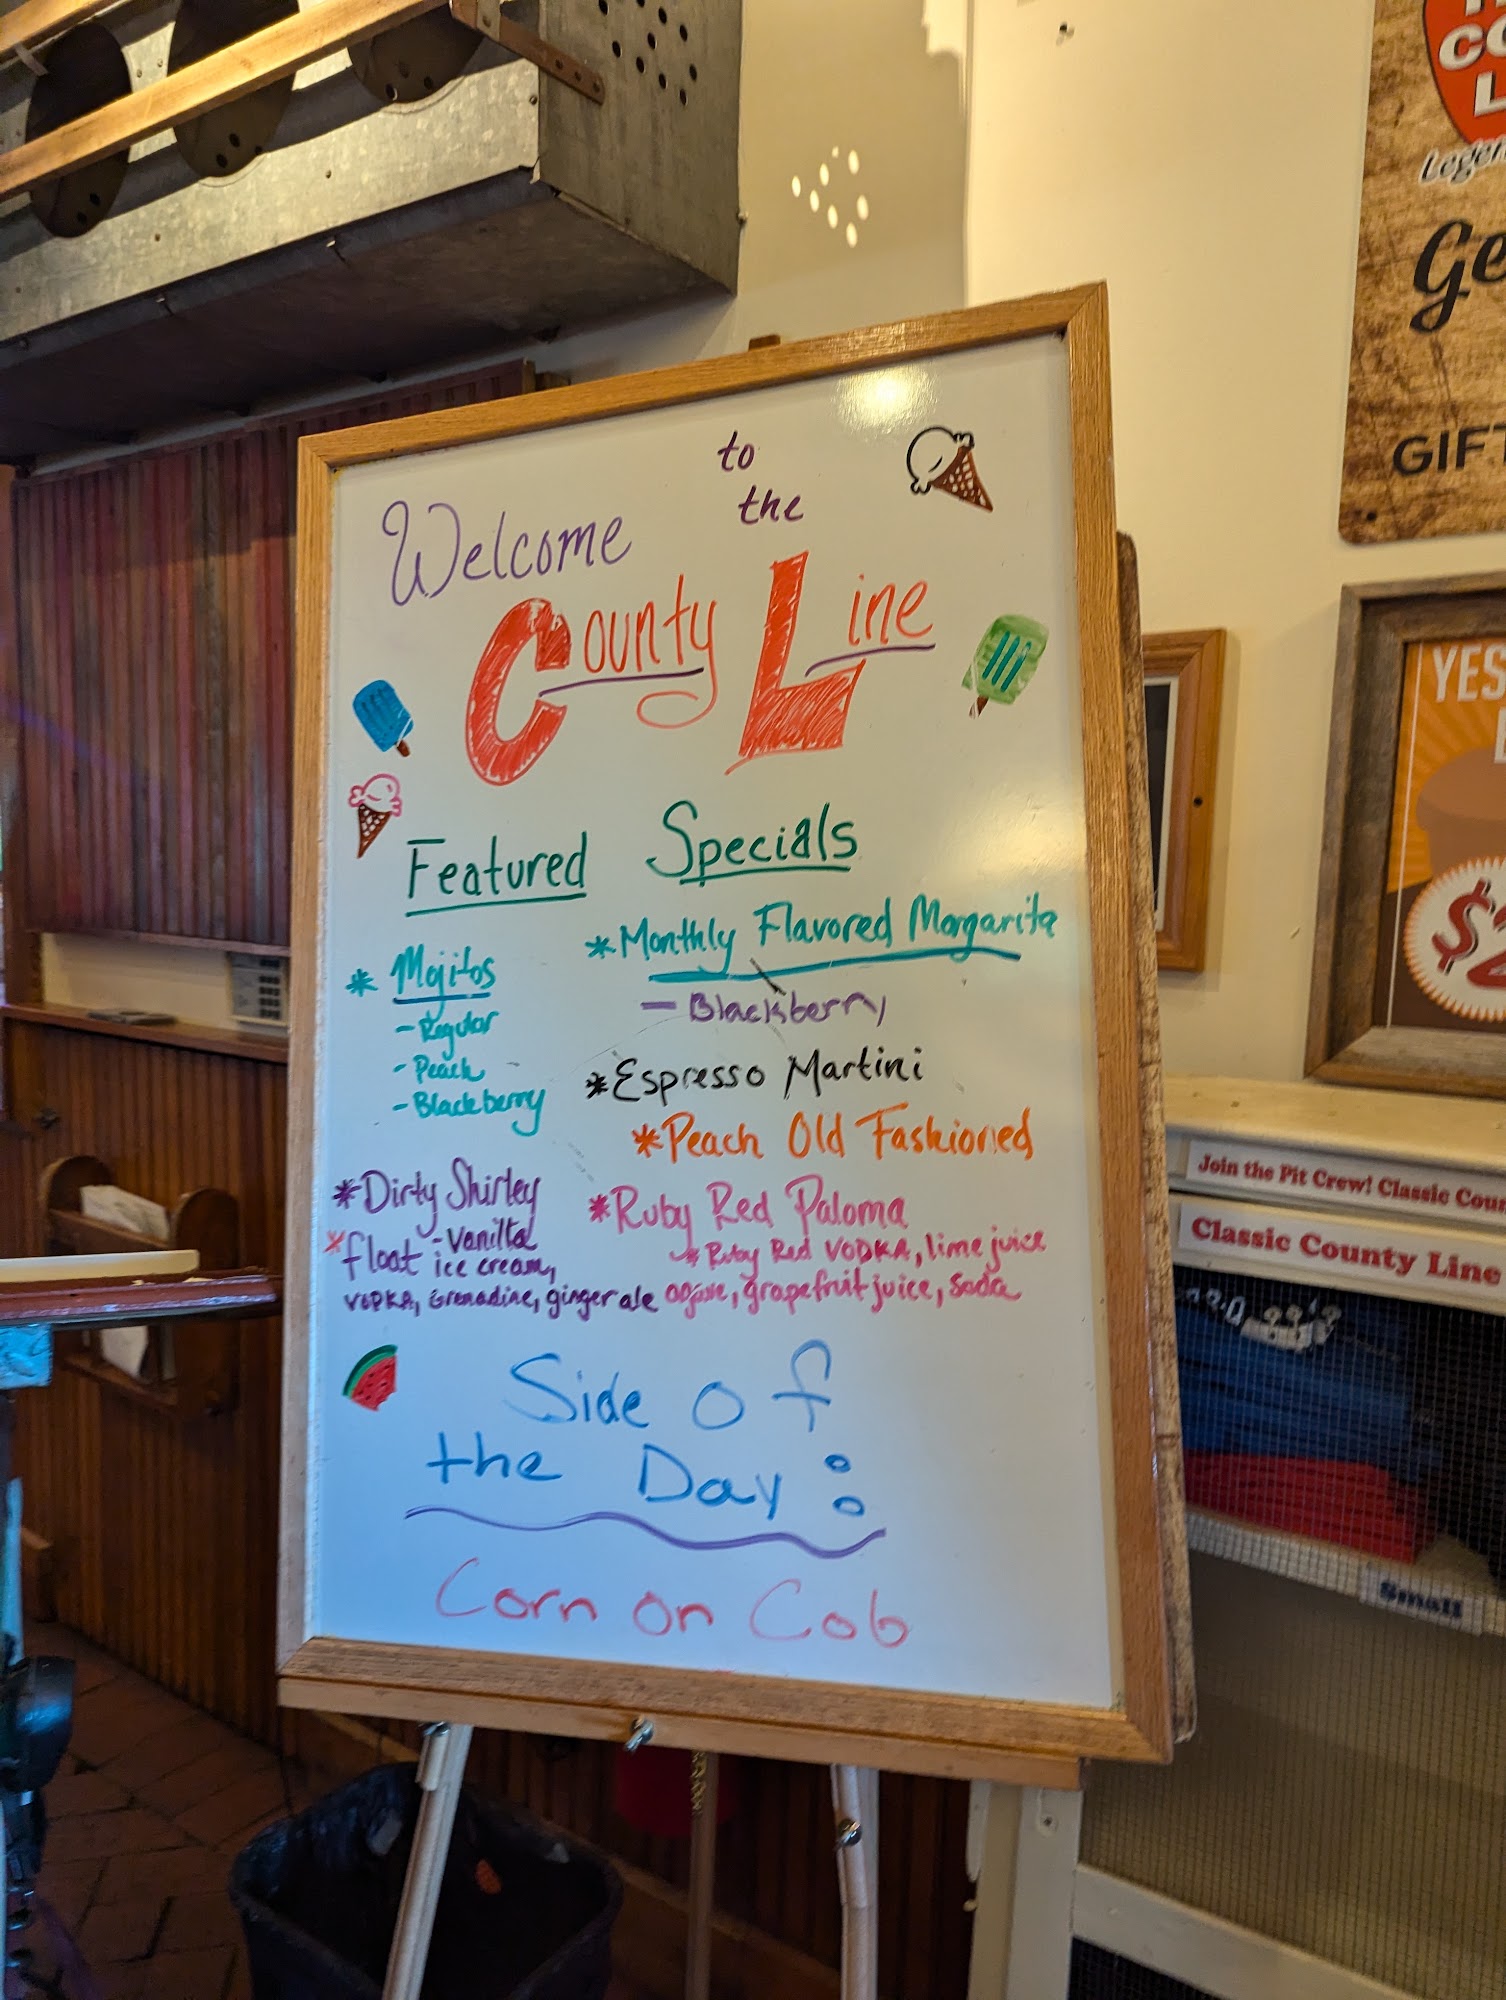 to
the
Welcome
County Line
Featured Specials
* Mojitos
- Regular
- Peach
- Blackberry
* Monthly Flavored Margarita
- Blackberry
* Espresso Martini
* Peach Old Fashioned
* Dirty Shirley
* float - Vanilla
ice cream,
VODKA, Grenadine, ginger ale
* Ruby Red Paloma
* Ruby Red VODKA, lime juice
agave, grapefruit juice, soda
Side of
the Day:
Corn on Cob
CO
L
Legen
Ge
GIFT
YES
$2
Join the Pit Crew! Classic Coun
Classic County Line
Small